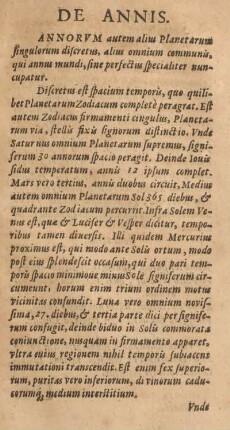 DE ANNIS.
ANNORVM autem alius Planetarum
singulorum discretus, alius omnium communis,
qui annus mundi, sine perfectus specialiter nun-
cupatur.
Discretus est spacium temporis, quo quili-
bet Planetarum Zodiacum completè peragrat. Est
autem Zodiacus firmamenti cingulus, Planeta-
rum via, stellis fixis signorum distinctio. Vnde
Saturnus omnium Planetarum supremus, signi-
ferum 30 annorum spacio peragit. Deinde Iouis
sidus temperatum, annis 12 ipsum complet.
Mars vero tertius, annis duobus circuit, Medius
autem omnium Planetarum Sol 365 diebus, &
quadrante Zodiacum percurrit. Infra Solem Ve-
nus est, quæ & Lucifer & Vesper dicitur, tempo-
ribus tamen diuersis. Illi quidem Mercurius
proximus est, qui modo ante Solis ortum, modò
post eius splendescit occasum, qui duo pari tem-
poris spacio minimoue minus Sole signiferum cir-
cumeunt, horum enim trium ordinem motus
vicinitas confundit. Luna vero omnium nouis-
sima, 27. diebus, & tertia parte diei per signife-
rum confugit, deinde biduo in Solis commorata
coniunctione, nusquam in firmamento apparet,
vltra cuius regionem nihil temporis subiacens
immutationi transcendit. Est enim fex superio-
rum, puritas vero inferiorum, diuinorum cadu-
corumq́, medium interstitium.
Vnde